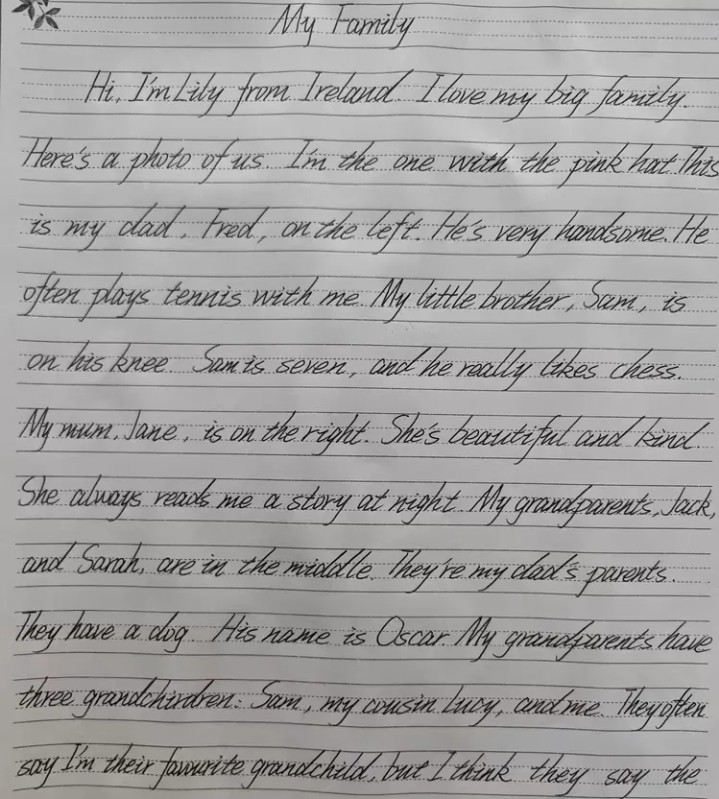 My Family
Hi, I'm Lily from Ireland. I love my big family.
Here's a photo of us. I'm the one with the pink hat. This
is my dad, Fred, on the left. He's very handsome. He
often plays tennis with me. My little brother, Sam, is
on his knee. Sam is seven, and he really likes chess.
My mum, Jane, is on the right. She's beautiful and kind.
She always reads me a story at night. My grandparents, Jack,
and Sarah, are in the middle. They're my dad's parents.
They have a dog. His name is Oscar. My grandparents have
three grandchirdren: Sam, my cousin Lucy, and me. They often
say I'm their favourite grandchild, but I think they say the